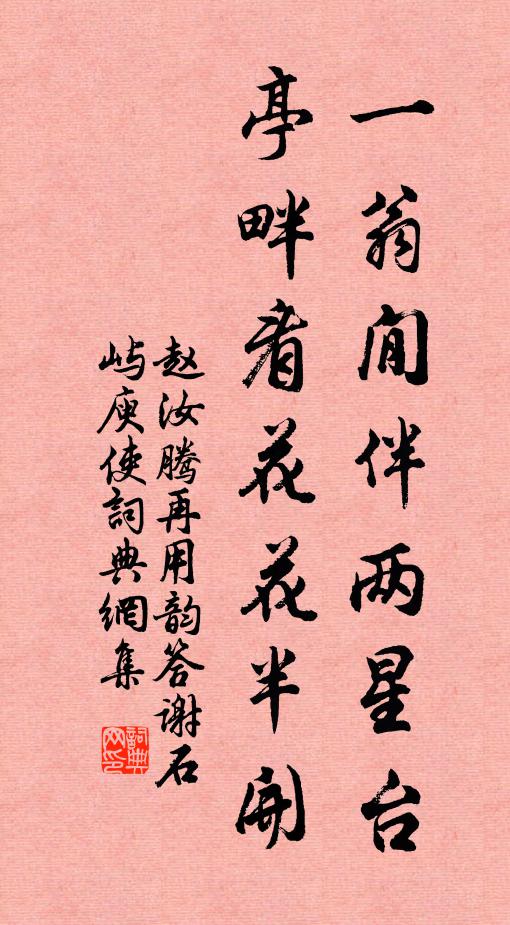 一翁闲伴两星台
亭畔看花花半开
赵汝腾再用韵答谢石
屿庾使词典网集
词典
网印